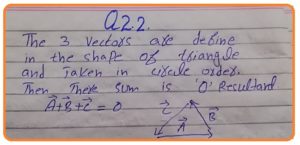 Q2.2.
The 3 vectors are define
in the shape of triangle
and Taken in circle order.
Then There sum is 'O' Resultand
A⃗+B⃗+C⃗ = 0
C⃗ A⃗ B⃗